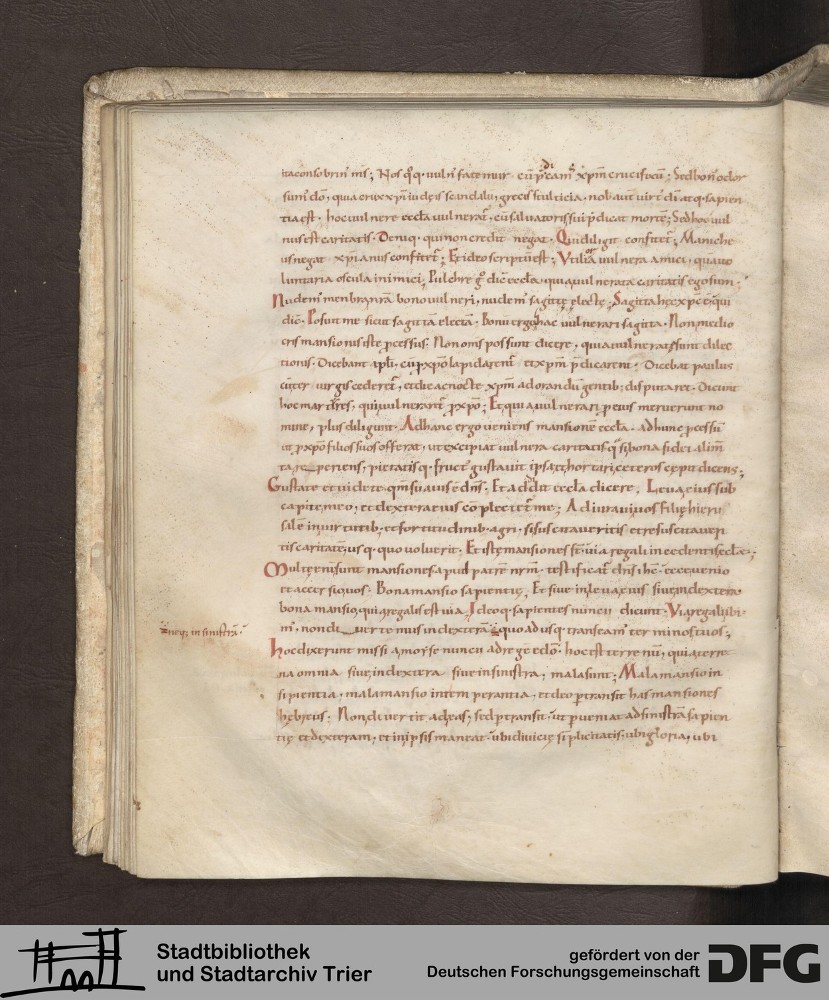 itaconsobrin' m̄s; Nos q̊q· uuln' fatemur cū p̄dicam' xp̄m crucifixū; Sedbon' odor
sum' dō, quia crux xp̄i iudęis scandalū, gręcis stulticia, nob' autē uirt' dī atq· sapien
tia est· hoc uulnere ęccl̄a uulnerat̄, cū saluatoris sui p̄dicat mortē; Sed hoc uul
nus est caritatis· Deniq· qui non credit negat· Qui diligit confitet̄; Maniche
us negat xp̄ianus confitet̄; Et ideo scriptū est; Vtiliora uulnera amici, quā uo
luntaria oscula inimici; Pulchre g̊ dic̄ ęccl̄a, quia uulnerata caritatis ego sum·
Nudem' menbranrā bono uulneri, nudem' sagittę electę; Sagitta hęc xp̄c ē, qui
dic̄· Posuit me sicut sagittā electā· Bonū ergo hac uulnerari sagitta· Non medio
cris mansionis iste p̄cessus· Non om̄s possunt dicere, quia uulnerati sunt dilec
tionis· Dicebant apl̄i, cū p xp̄o lapidarent̄ et xp̄m p̄dicarent· Dicebat paulus
cū ter uirgis cederet̄, et die ac nocte xp̄m adorandū gentib; disputaret· Dicunt
hoc martyres, qui uulnerant̄ p xp̄o; Et quia uulnerari p eius meruerunt no
mine, plus diligunt· Ad hanc ergo ueniens mansionē ęccl̄a· ad hunc p̄cessū
ut p xp̄o filios suos offerat, ut excipiat uulnera caritatis
periens, pietatisq· fruct' gustauit ipsa et hortari ceteros cępit dicens;
Gustate et uidete qm̄ suauis ē dn̄s· Et addit ęccl̄a dicere, Leua eius sub
capite meo, et dextera eius cōplectet̄ me; Adiuraui uos filię hieru
salē in uirtutib; et fortitudinib· agri, si suscitaueritis et resuscitaueri
tis caritatē, usq· quo uoluerit· Et istę mansiones st̄· uia regali incedentis eccl̄ę;
Multę enim sunt mansiones apud patrē nrm̄· testificat̄ dn̄s ih̄c· ecce uenio
et accersiq uos· Bona mansio sapientię, Et siue in leua eius siue in dextera
bona mansio, quia regalis est uia, Ideoq· sapientes nuncii dicunt· Via regali ibi-
m', non diuertemus in dexterā quo adusq· transeam' terminos tuos;
hoc dixerunt missi a morse nuncii ad regē edō· hoc est terrenū, quia terre
na omnia siue in dextera siue in sinistra, mala sunt; Mala mansio in
sipientia, mala mansio intemperantia, et deo ptransit has mansiones
hębreus; Non diuertit ad eas, sed ptransit· ut pueniat ad sinistrā sapien
tię et dexteram, et in ipsis maneat· ubi diuicię simplicitatis, ubi gloria, ubi
neq; in sinistrā·
Stadtbibliothek
und Stadtarchiv Trier
gefördert von der
Deutschen Forschungsgemeinschaft
DFG